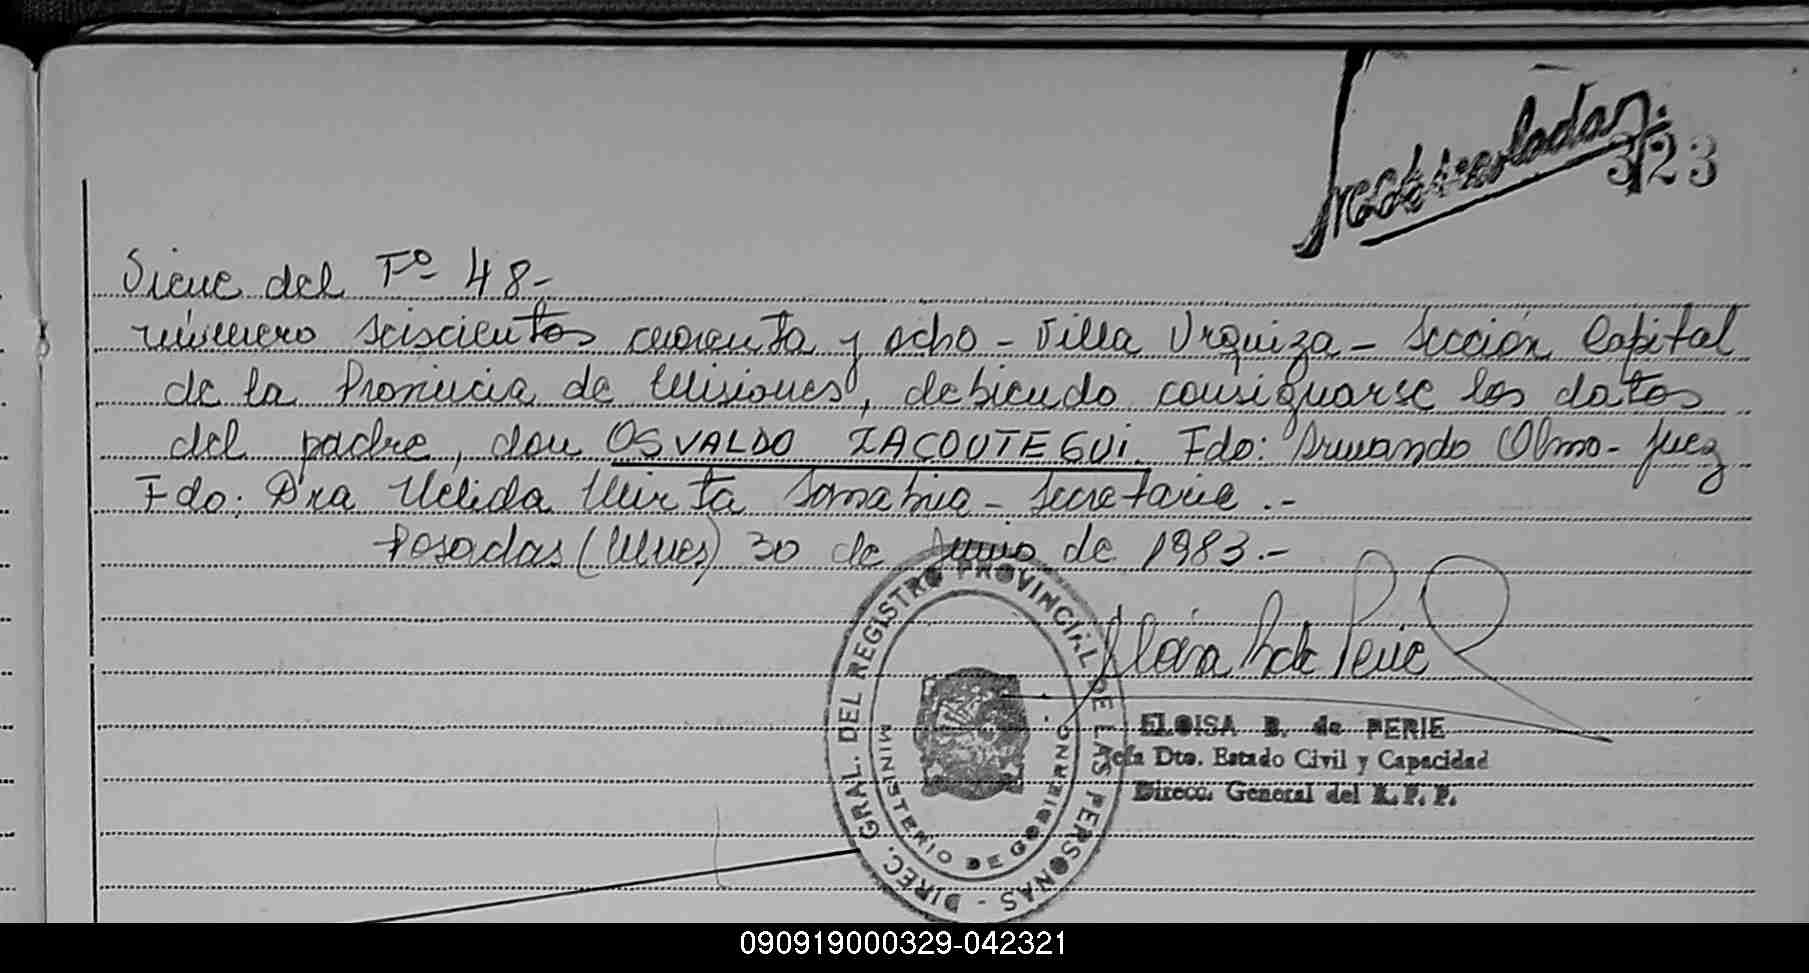 Inmatriculadas.
323
Sicue del Fº 48-
número seiscientos cuarenta y ocho - Villa Urquiza - Sección Capital
de la Provincia de Misiones, debiendo consignarse los datos
del padre, don OSVALDO ZACOUTEGUI. Fdo: Armando Olmo - Juez
Fdo: Dra Nélida Mirta Sanabria - Secretaria.-
Posadas (Mnes) 30 de Junio de 1983.-
DIREC. GRAL. DEL REGISTRO PROVINCIAL DE LAS PERSONAS -
MINISTERIO DE GOBIERNO
ELOISA B. de PERIE
Jefa Dto. Estado Civil y Capacidad
Direcc. General del R.P.P.
090919000329-042321